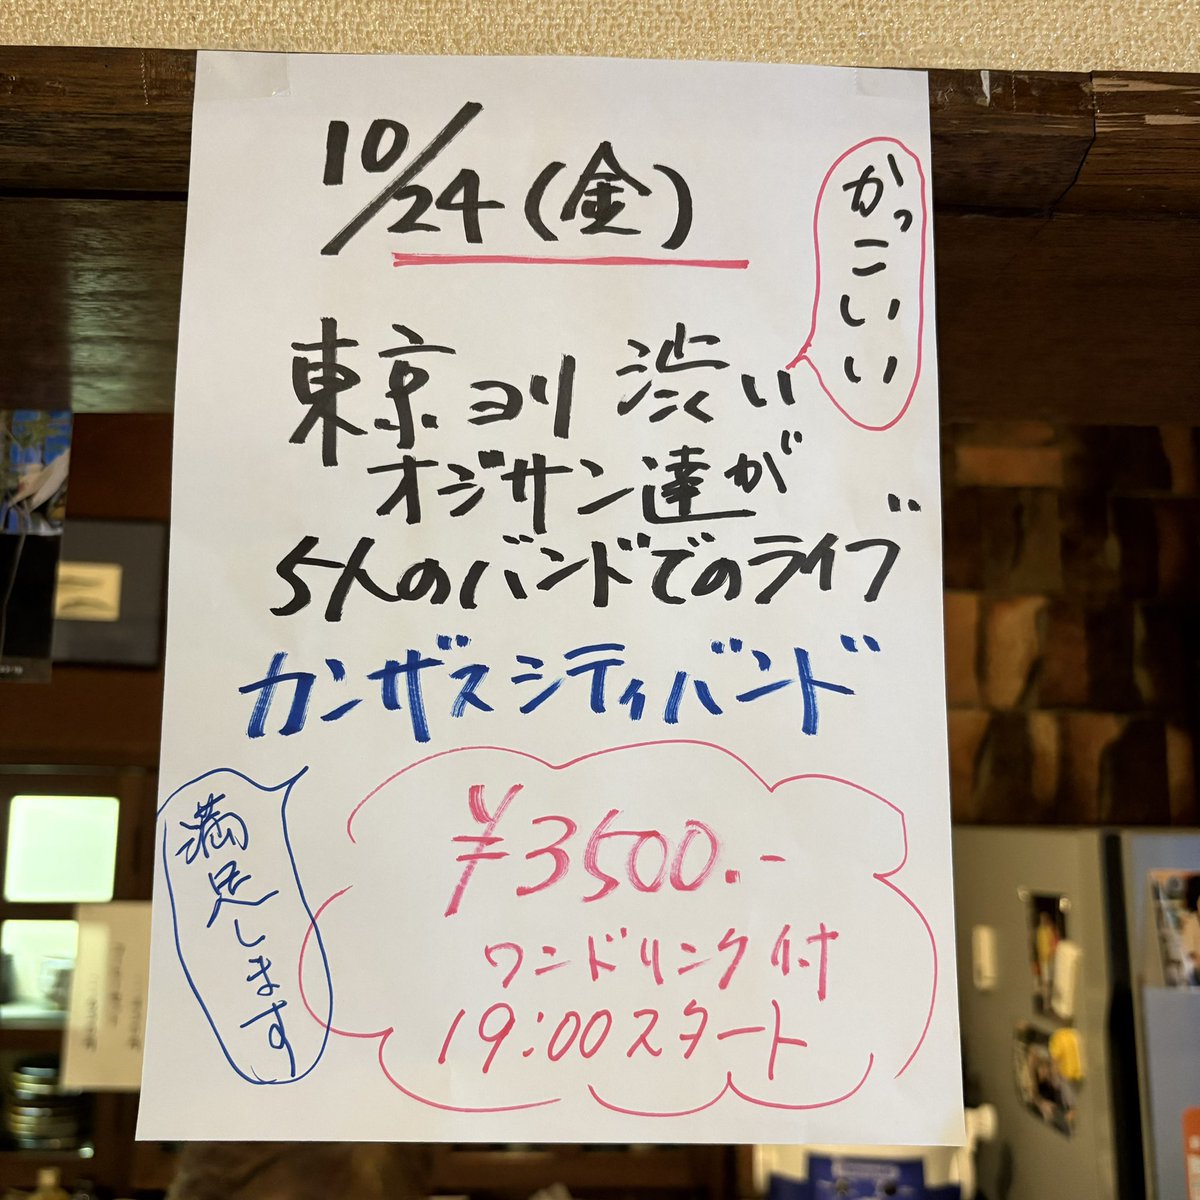 10/24(金)
かっこいい
東京ヨリ 渋い
オジサン達が
5人のバンドでのライブ
カンザスシティバンド
満足します
¥3500.-
ワンドリンク付
19:00スタート